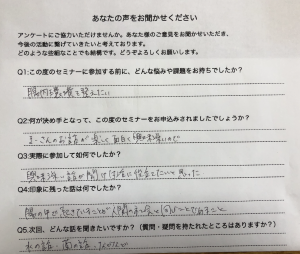 あなたの声をお聞かせください
アンケートにご協力いただけませんか。あなた様のご意見をお聞かせいただき、
今後の活動に繋げていきたいと考えております。
どのような些細なことでも結構です。どうぞよろしくお願いします。
Q1:この度のセミナーに参加する前に、どんな悩みや課題をお持ちでしたか?
腸内環境を整えたい
Q2:何が決め手となって、この度のセミナーをお申込みされましたでしょうか?
さんのお話が楽しく面白く興味深いので
Q3:実際に参加して如何でしたか?
興味深い話が聞け
と思った
Q4:印象に残った話は何でしたか?
腸の中で起きていることが人間の社会と同じことであること
Q5:次回、どんな話を聞きたいですか?(質問・疑問を持たれたところはありますか?)
私の話・菌の話